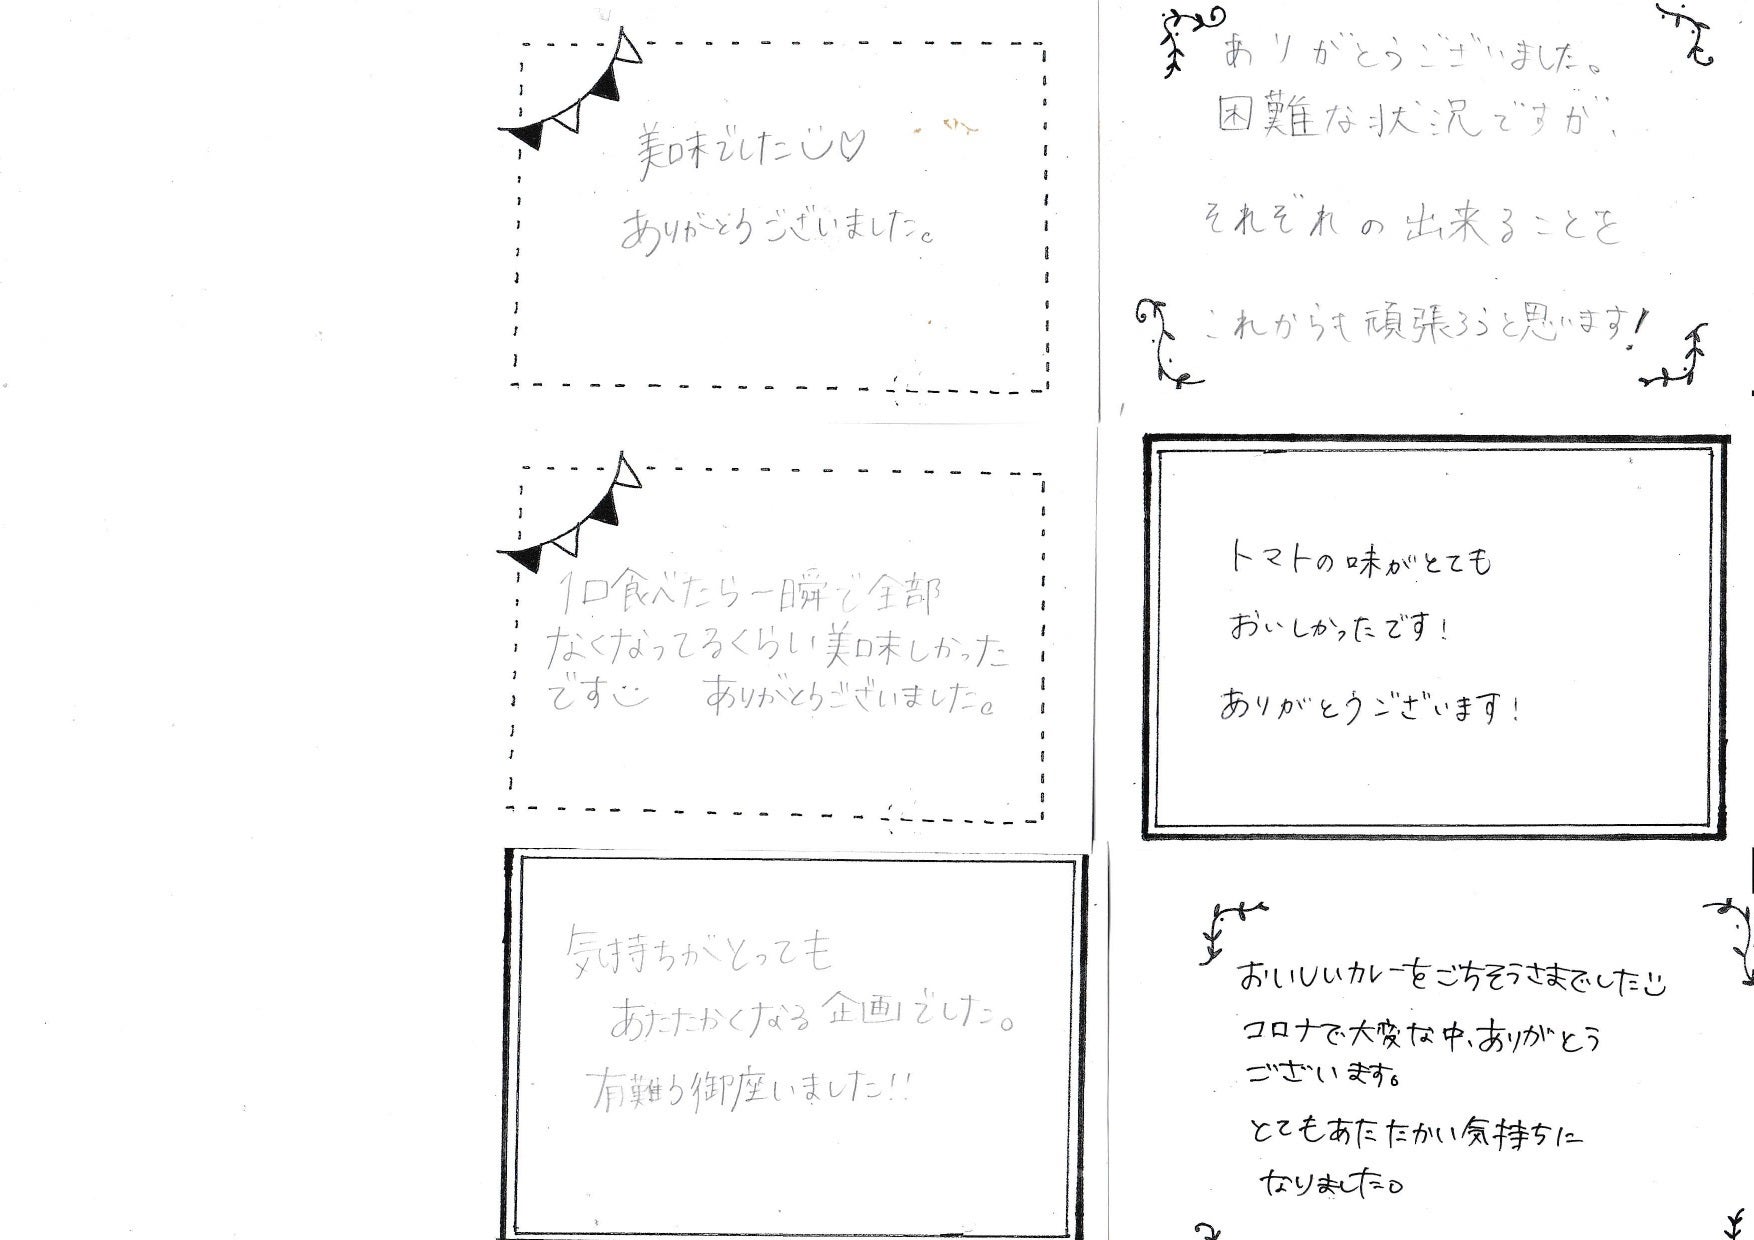 美味でした
ありがとうございました。
ありがとうございました。
困難な状況ですが、
それぞれの出来ることを
これからも頑張ろうと思います!
1口食べたら一瞬で全部
なくなってるくらい美味しかった
です ありがとうございました。
トマトの味がとても
おいしかったです!
ありがとうございます!
気持ちがとっても
あたたかくなる企画でした。
有難う御座いました!!
おいしいカレーをごちそうさまでした
コロナで大変な中、ありがとう
ございます。
とてもあたたかい気持ちに
なりました。